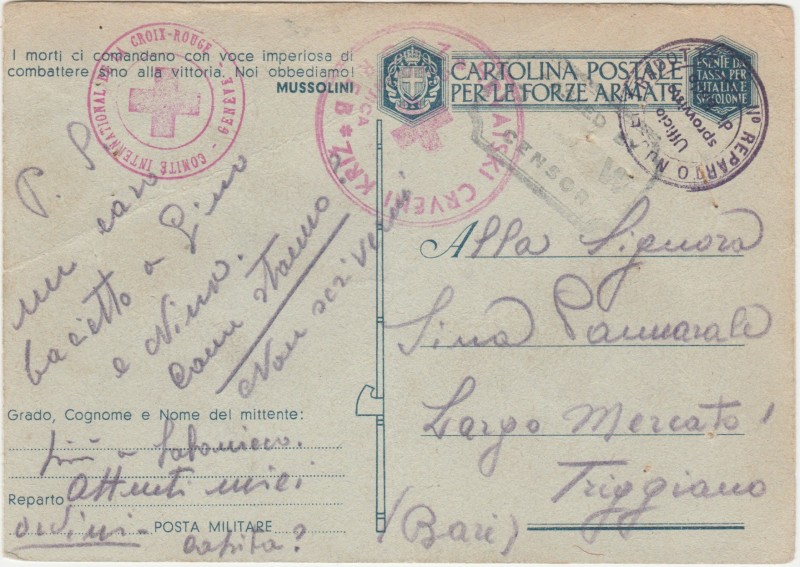 I morti ci comandano con voce imperiosa di
combattere sino alla vittoria. Noi obbediamo!
MUSSOLINI
COMITÉ INTERNATIONAL DE LA CROIX-ROUGE - GENÈVE
CRVENI KRIŽ
CARTOLINA POSTALE
PER LE FORZE ARMATE
ESENTE DA
TASSA PER
L'ITALIA E
SUE COLONIE
CENSOR
1º REPARTO
Ufficio
sprovvisto
P. S.
un caro
bacietto a Gino
e Nino.
Come stanno?
Non scrivermi
Alla Signora
Sina Pannarale
Largo Mercato 1
Triggiano
(Bari)
Grado, Cognome e Nome del mittente:
più a
Attenti miei
Reparto
ordini
POSTA MILITARE
Capita?